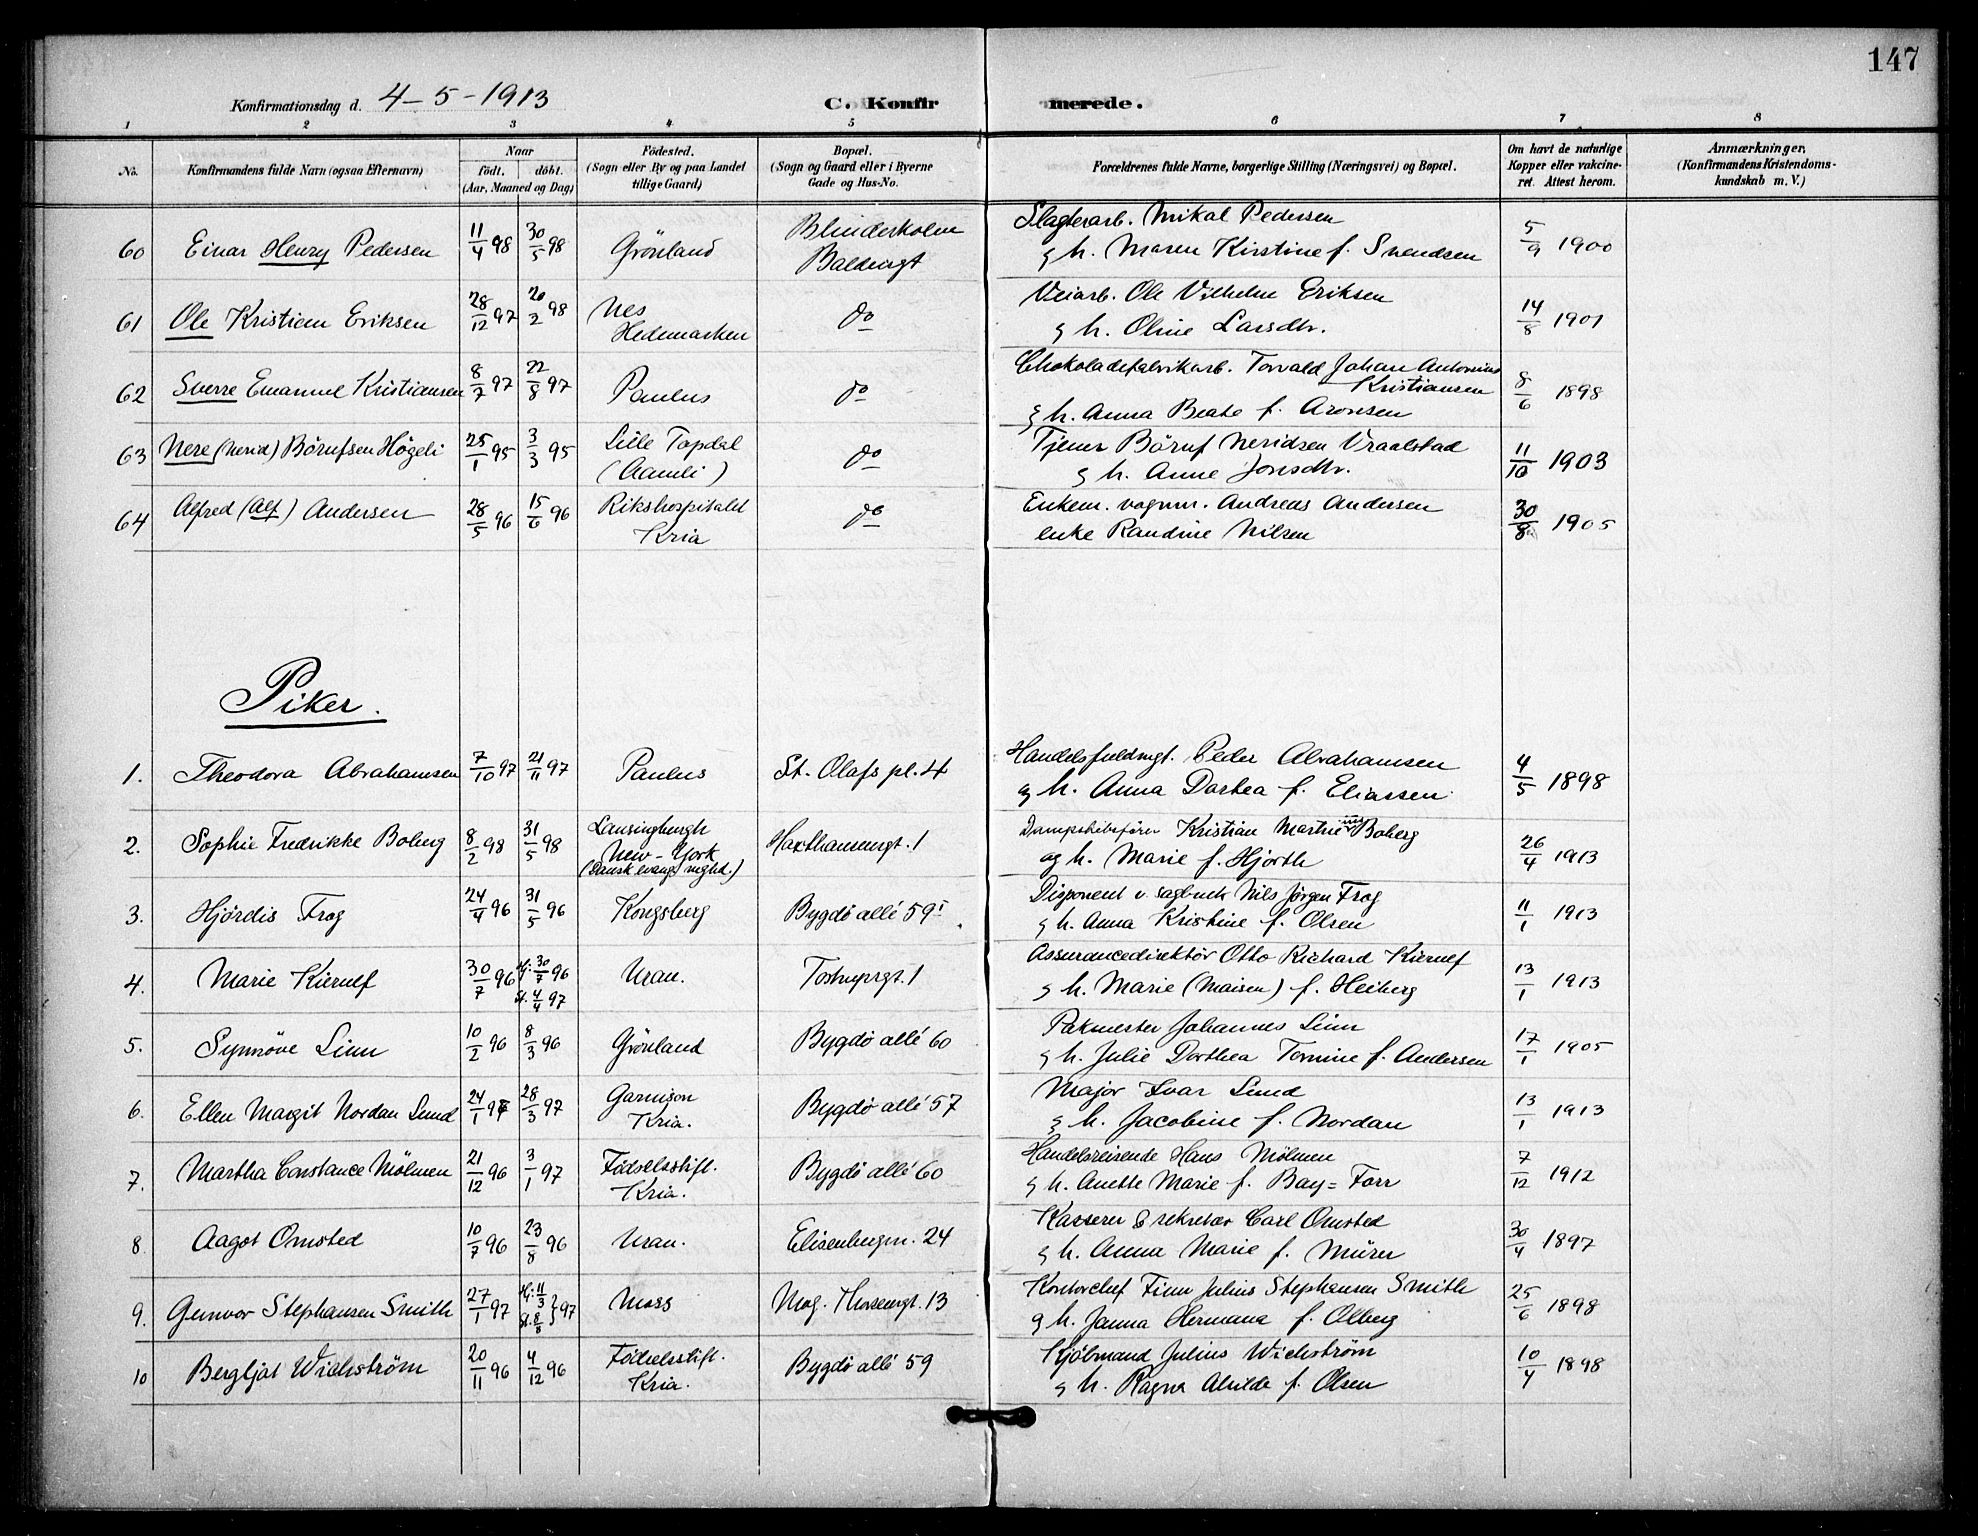 147
Konfirmationsdag d. 4-5-1913
C. Konfirmerede.
1 2 3 4 5 6 7 8
No. Konfirmandens fulde Navn (ogsaa Efternavn) Naar født. døbt. (Aar, Maaned og Dag) Fødested. (Sogn eller By og paa Landet tillige Gaard) Bopæl. (Sogn og Gaard eller i Byerne Gade og Hus-No. Forældrenes fulde Navne, borgerlige Stilling (Næringsvei) og Bopæl. Om havt de naturlige Kopper eller vakcineret. Attest herom. Anmærkninger, (Konfirmandens Kristendomskundskab m. V.)
60 Einar Henry Pedersen 11/4 98 30/5 98 Grönland Blindeskolen Baldersgt Slagterarb. Mikal Pedersen
& h. Maren Kirstine f. Svendsen 5/9 1900
61 Ole Kristian Eriksen 28/12 97 20/2 98 Nes Hedemarken do Veiarb. Ole Vilhelm Eriksen
& h. Oline Larsdtr. 14/8 1901
62 Sverre Emanuel Kristiansen 8/7 97 22/8 97 Paulus do Chokoladefabrikarb. Torvald Johan Antonius Kristiansen
& h. Anna Beate f. Aronsen 8/6 1898
63 Nere (Nerid) Børufsen Högeli 25/1 95 3/3 95 Lille Topdal (Aamli) do Tjener Böruf Neridsen Vraalstad
& h. Anne Jonsdtr. 11/10 1903
64 Alfred (Alf) Andersen 28/5 96 15/6 96 Rikshospitalet Kria do Enkem. vognm. Andreas Andersen
enke Randine Nilsen 30/8 1905
Piker.
1. Theodora Abrahamsen 7/10 97 21/11 97 Paulus St. Olafs pl. 4 Handelsfuldmgt. Peder Abrahamsen
og h. Anna Dorthea f. Eliassen 4/5 1898
2. Sophie Fredrikke Boberg 8/2 98 31/5 98 Lansingburgh New-York (Dansk evang. meght.) Haxthausensgt. 1 Dampskibsfører Kristian Martinius Boberg
og h. Marie f. Hjorth 26/4 1913
3. Hjördis Frog 24/4 96 31/5 96 Kongsberg Bygdö allé 59 I Disponent v. sagbruk Nils Jørgen Frog
& h. Anna Kristine f. Olsen 11/1 1913
4. Marie Kierulf 30/7 96 Hj: 30/7 96 St. 4/4 97 Uran. Tostrupsgt. 1 Assurancedirektör Otto Richard Kierulf
& h. Marie (Maisen) f. Heiberg 13/1 1913
5. Synnöve Linn 10/2 96 8/3 96 Grönland Bygdö allé 60 Pakmester Johannes Linn
& h. Julie Dorthea Tomine f. Andersen 17/1 1905
6. Ellen Margit Nordan Lund 24/1 97 28/3 97 Garnison Kria. Bygdö allé 57 Major Ivar Lund
& h. Jacobine f. Nordan 13/1 1913
7. Martha Constance Mölmen 21/12 96 3/1 97 Fødselsstift. Kria. Bygdö allé 60 Handelsreisende Hans Mölmen
& h. Anette Marie f. Bay=Torr 7/12 1912
8 Aagot Omsted 10/7 96 23/8 96 Uran. Elisenbergv. 24 Kasserer & sekretær Carl Omsted
& h. Anna Marie f. Mürer 30/4 1897
9. Gunvor Stephansen Smith 27/1 97 Hj: 11/3 St. 8/8 } 97 Moss Mog. Thorsensgt. 13 Kontorchef Finn Julius Stephansen Smith
& h. Janna Hermana f. Olberg 25/6 1898
10 Bergljot Wichström 20/11 96 4/12 96 Fødselsstift. Kria. Bygdö allé 59 Kjöbmand Julius Wichström
& h. Ragna Alvilde f. Olsen 10/4 1898